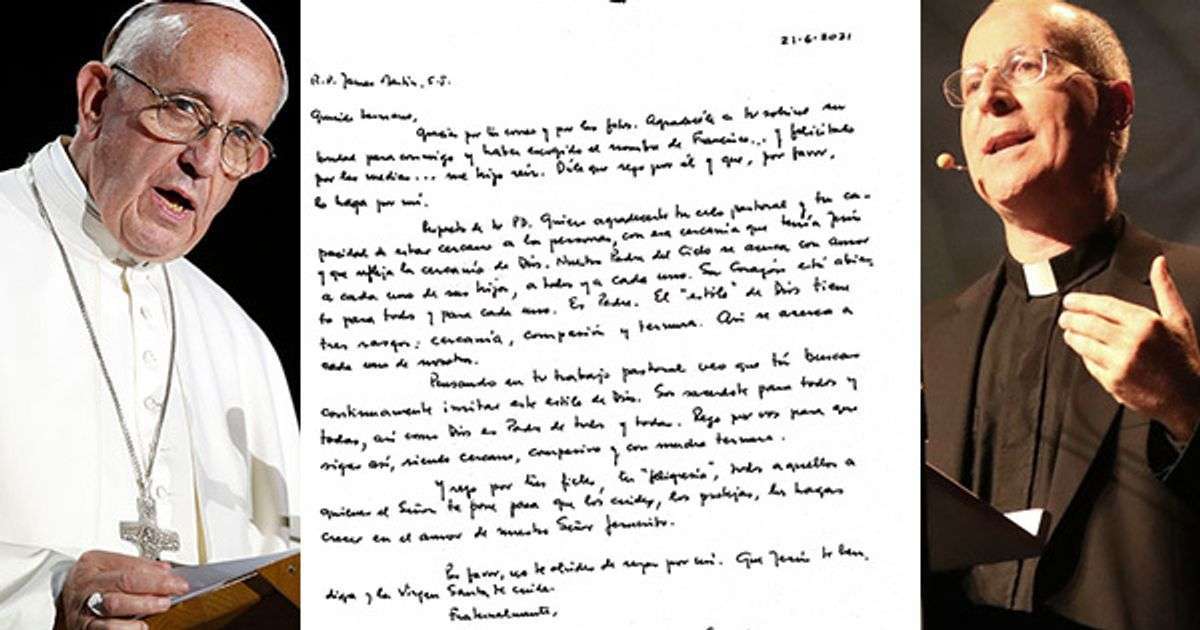 21-6-2021
R.P. James Martin, S.J.
Querido hermano,
Gracias por tu correo y por las fotos. Agradecele a tu sobrino su
bondad para conmigo y haber escogido el nombre de Francisco... y felicitalo
por las medias... me hizo reír. Dile que rezo por él y que, por favor,
lo haga por mí.
Respecto de tu PD. Quiero agradecerte tu celo pastoral y tu ca-
pacidad de estar cercano a las personas, con esa cercanía que tenía Jesús
y que refleja la cercanía de Dios. Nuestro Padre del Cielo se acerca con amor
a cada uno de sus hijos, a todos y a cada uno. Su corazón está abier-
to para todos y para cada uno. Es Padre. El "estilo" de Dios tiene
tres rasgos: cercanía, compasión y ternura. Así se acerca a
cada uno de nosotros.
Pensando en tu trabajo pastoral veo que tú buscas
continuamente imitar este estilo de Dios. Sos sacerdote para todos y
todas, así como Dios es Padre de todos y todas. Rezo por vos para que
sigas así, siendo cercano, compasivo y con mucha ternura.
Y rezo por tus fieles, tu "feligresía", todos aquellos a
quienes el Señor te pone para que los cuides, los protejas, los hagas
crecer en el amor de nuestro Señor Jesucristo.
Por favor, no te olvides de rezar por mí. Que Jesús te ben-
diga y la Virgen Santa te cuide.
Fraternalmente,